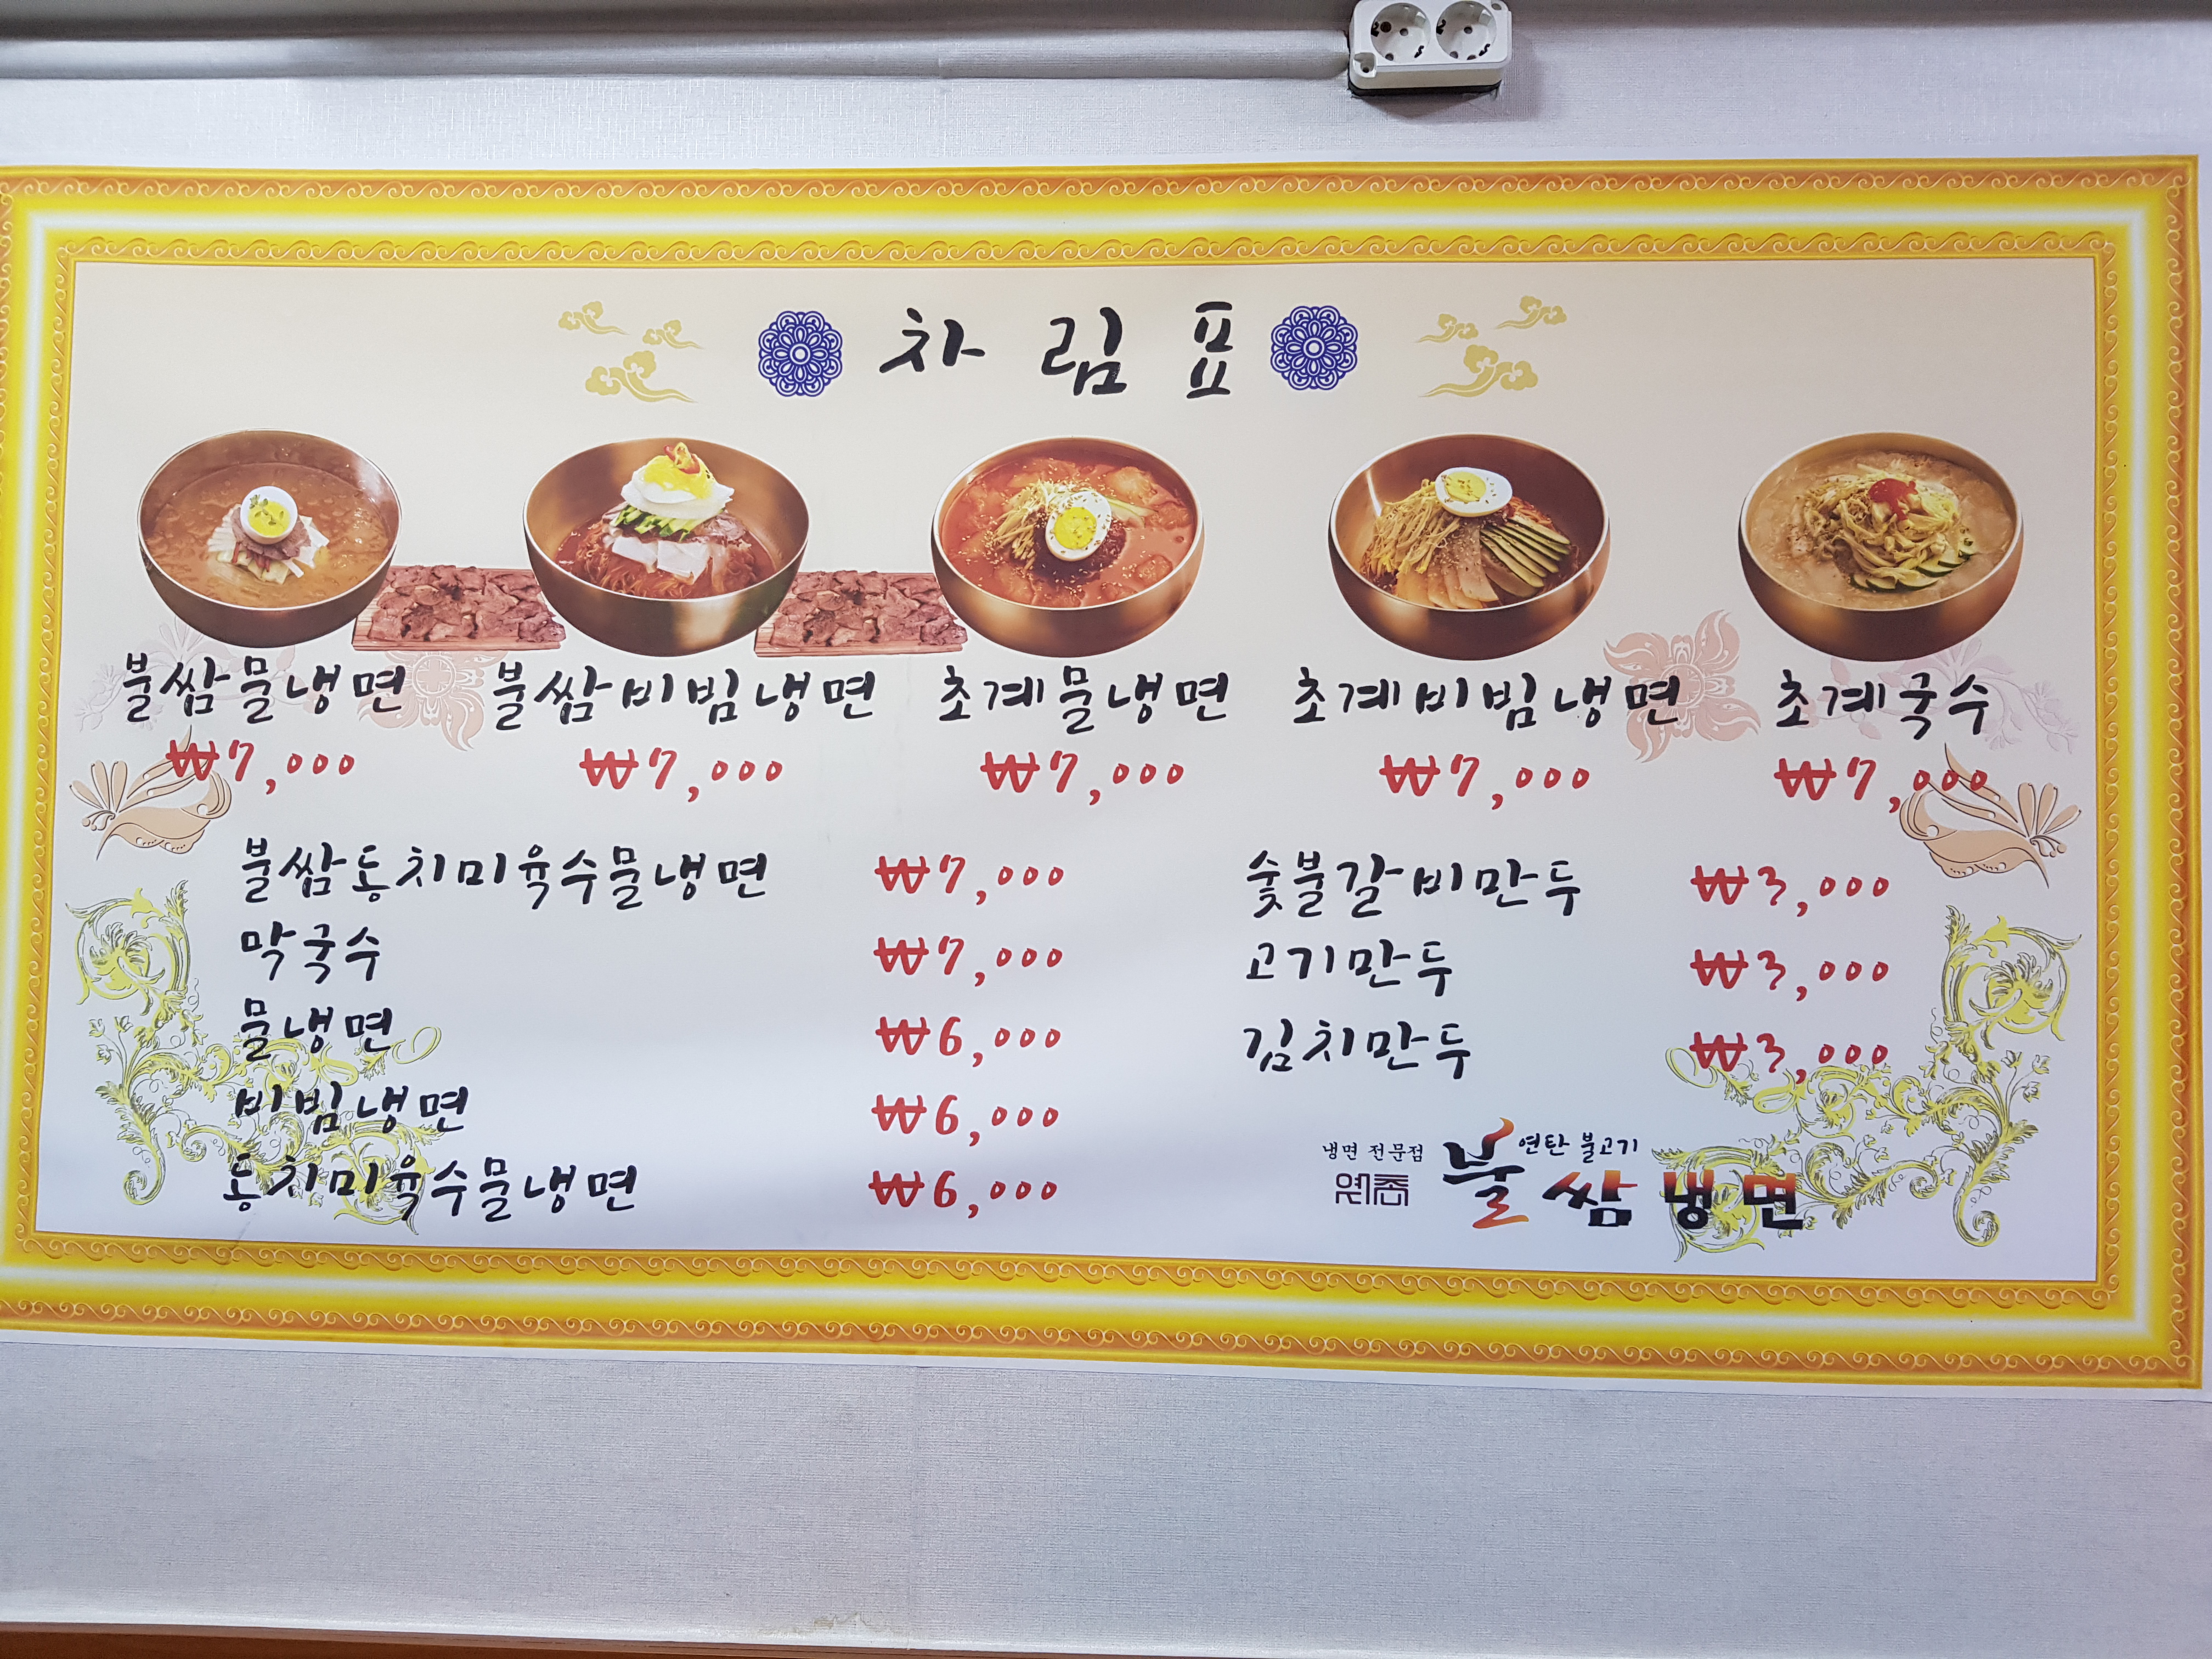 차림표
불쌈물냉면 불쌈비빔냉면 초계물냉면 초계비빔냉면 초계국수
₩7,000 ₩7,000 ₩7,000 ₩7,000 ₩7,000
불쌈동치미육수물냉면 ₩7,000
막국수 ₩7,000
물냉면 ₩6,000
비빔냉면 ₩6,000
동치미육수물냉면 ₩6,000
숯불갈비만두 ₩3,000
고기만두 ₩3,000
김치만두 ₩3,000
냉면 전문점 연탄 불고기
원조 불쌈냉면